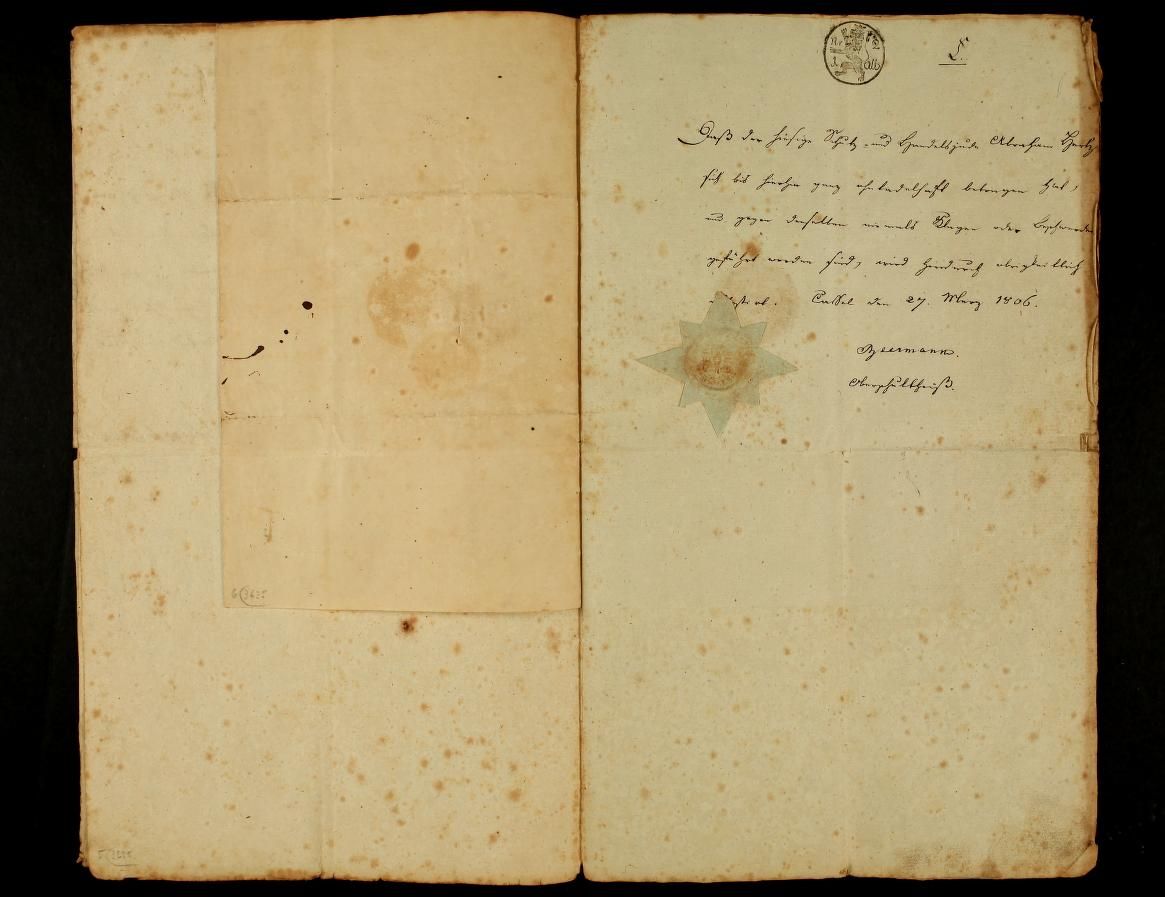 6(3625
Daß der hiesige Schutz- und Handelsjude Abraham Hertz
sich bis hierher ganz ohntadelhaft betragen hat,
und gegen denselben niemals Klagen oder Beschwerden
geführt worden sind, wird hierdurch obrigkeitlich
Cassel den 27. Merz 1806.
Oberschultheiß.